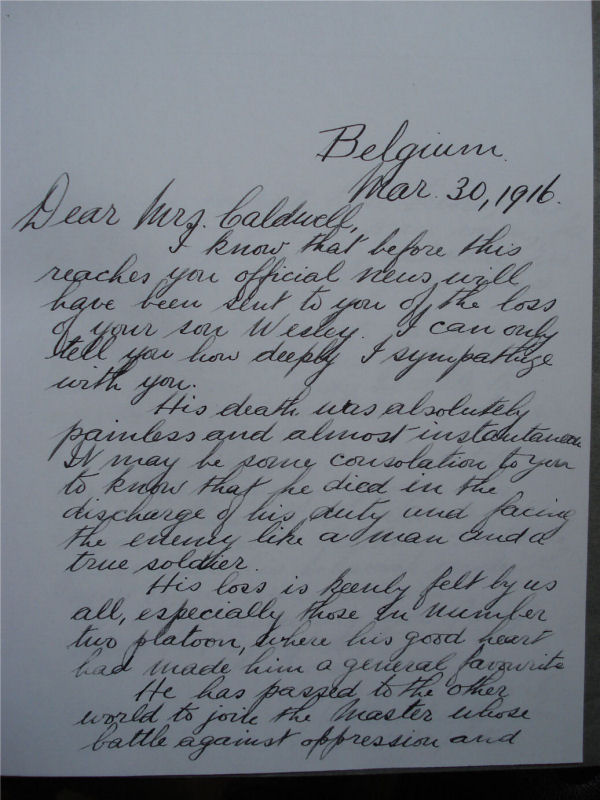 Belgium.
Mar. 30, 1916.
Dear Mrs. Caldwell,
I know that before this
reaches you official news will
have been sent to you of the loss
of your son Wesley. I can only
tell you how deeply I sympathize
with you.
His death was absolutely
painless and almost instantaneous
It may be some consolation to you
to know that he died in the
discharge of his duty and facing
the enemy like a man and a
true soldier.
His loss is keenly felt by us
all, especially those in number
two platoon, where his good heart
had made him a general favourite
He has passed to the other
world to join the Master whose
battle against oppression and